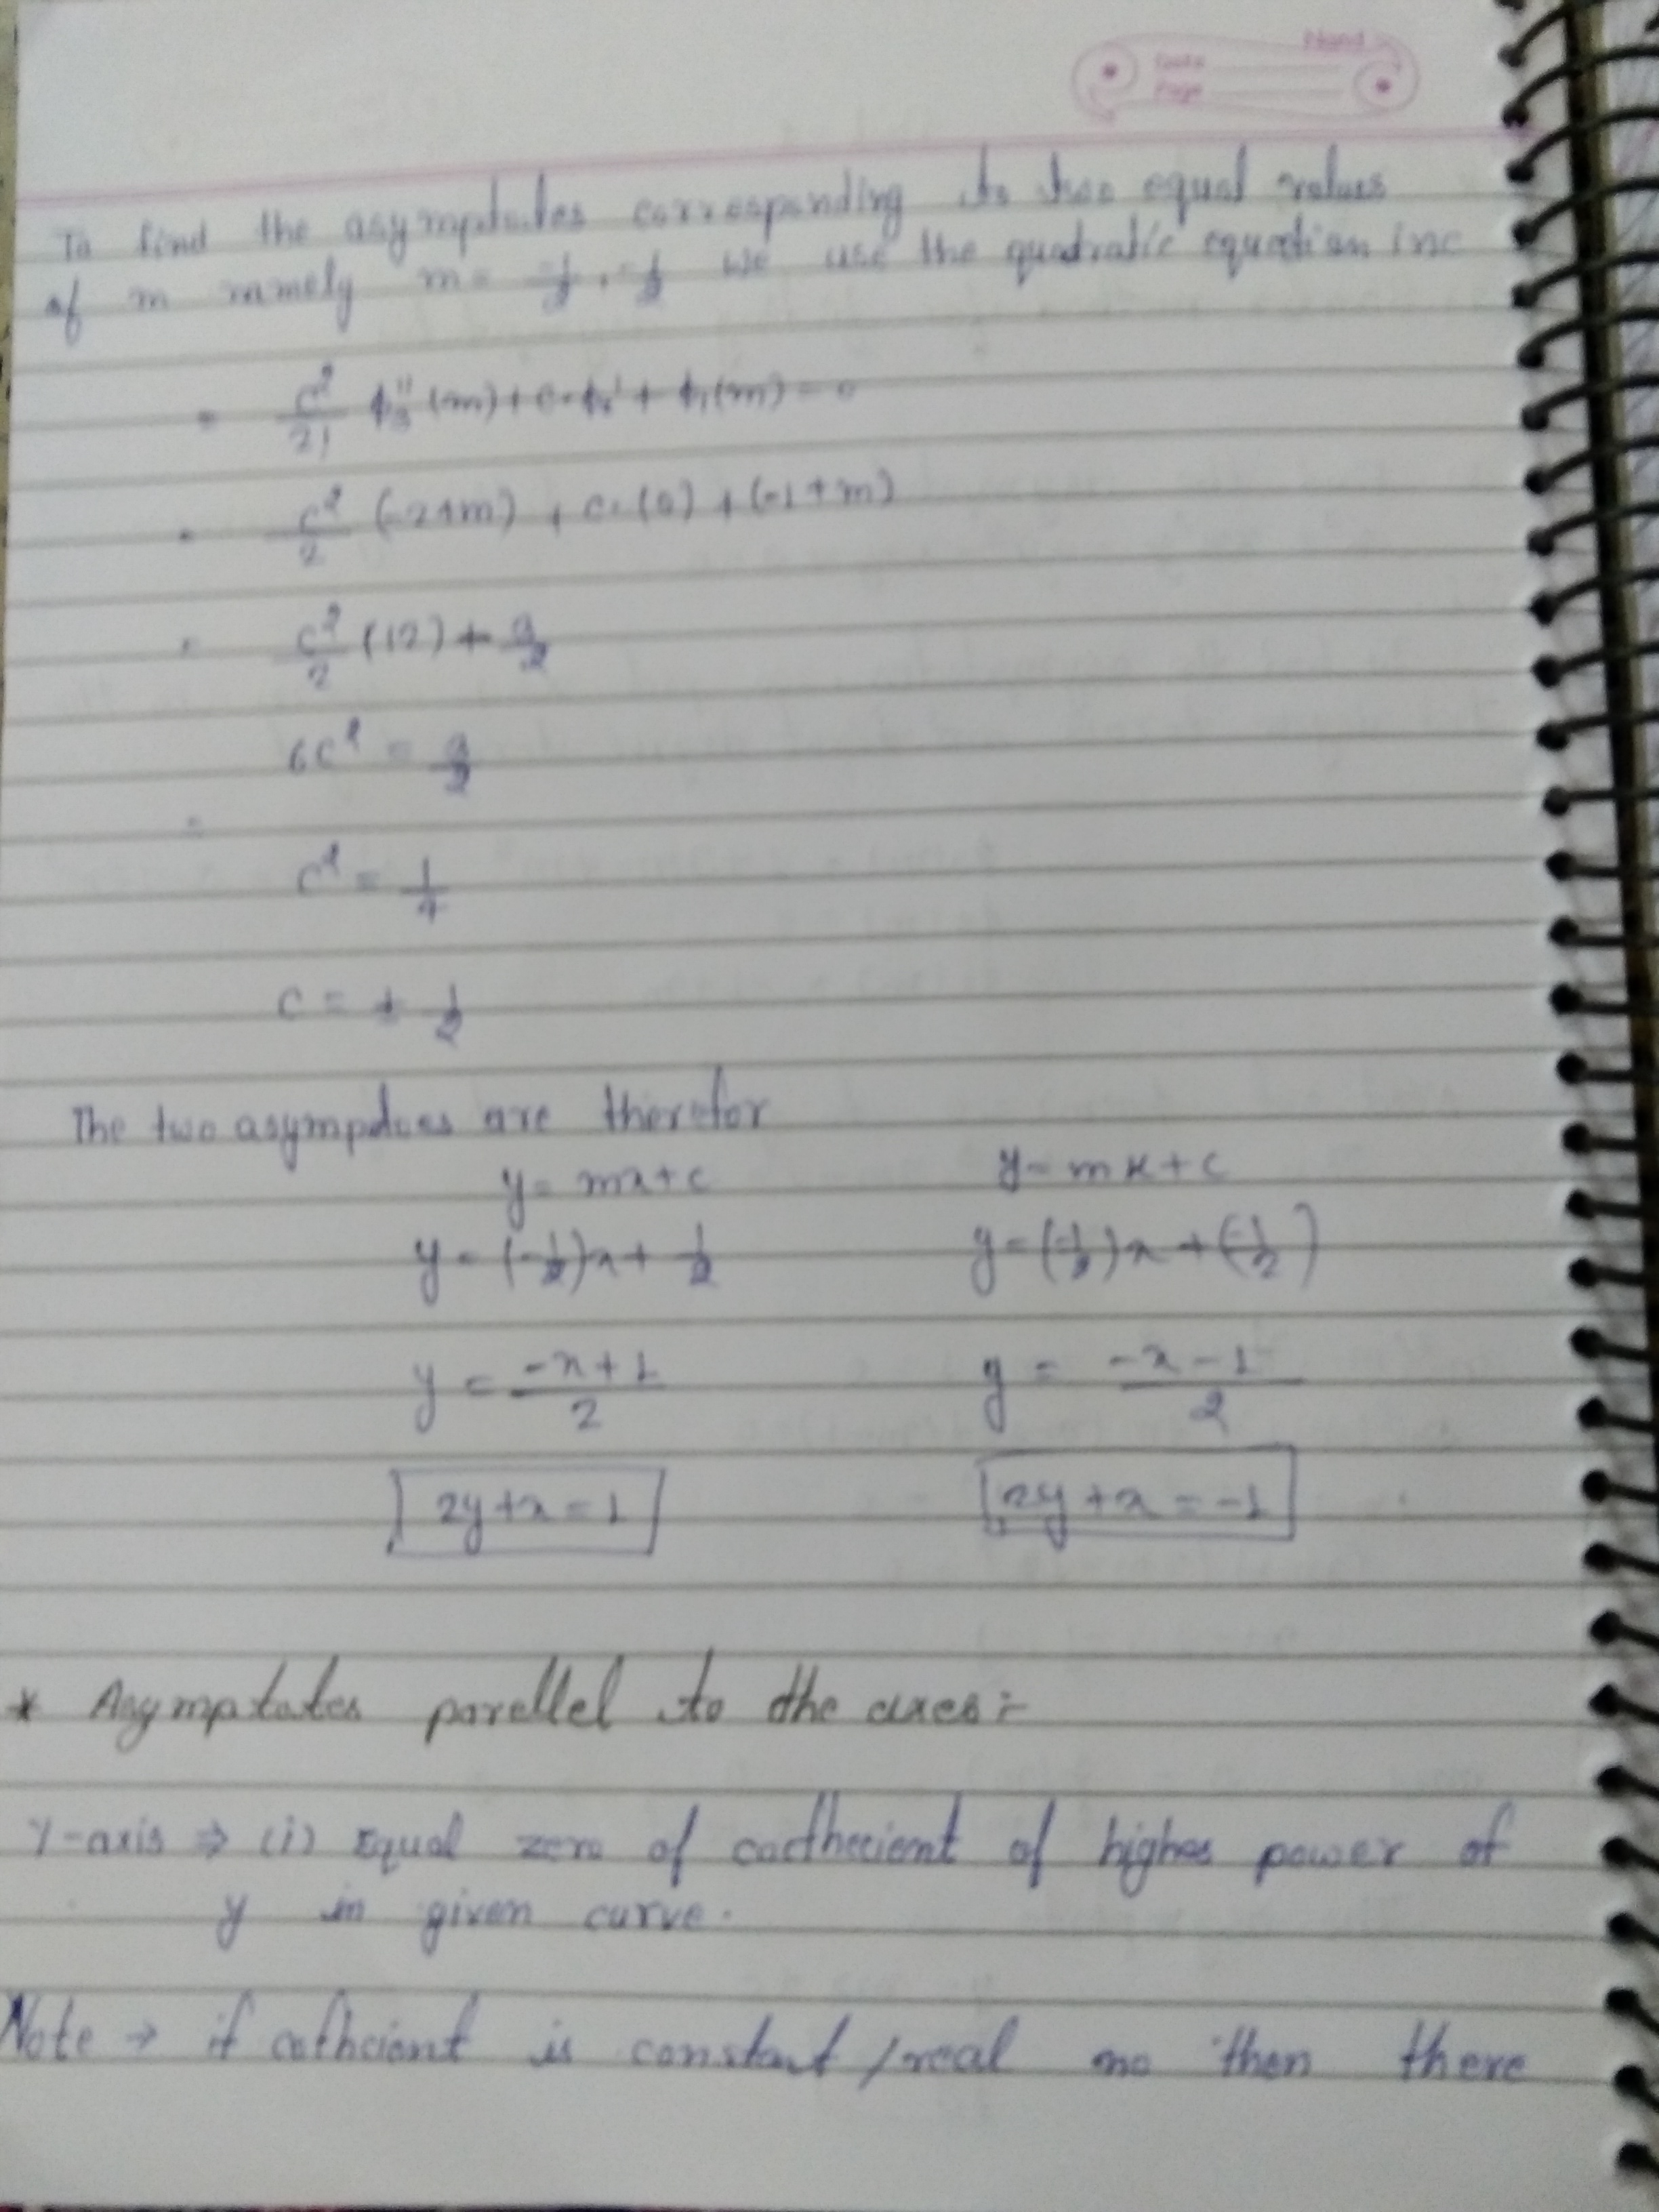 Nand
Date
Page
To find the asymptotes corresponding to two equal values
of m namely m = -1/2, -1/2 we use the quadratic equation in c
= c²/2! ϕ₃''(m) + c·ϕ₂' + ϕ₁(m) = 0
= c²/2 (-24m) + c·(0) + (-1+m)
= c²/2 (12) + 3/2
6c² = 3/2
=
c² = 1/4
c = ± 1/2
The two asymptoes are therefor
y = mx+c y = mx+c
y = (-1/2)x + 1/2 y = (-1/2)x + (-1/2)
y = -x+1/2 y = -x-1/2
2y+x = 1 2y+x = -1
* Asymptotes parellel to the axes :-
Y-axis ⇒ (i) Equal zero of coefhecient of highes power of
y in given curve.
Note → if cofhcient is constant / real no then there